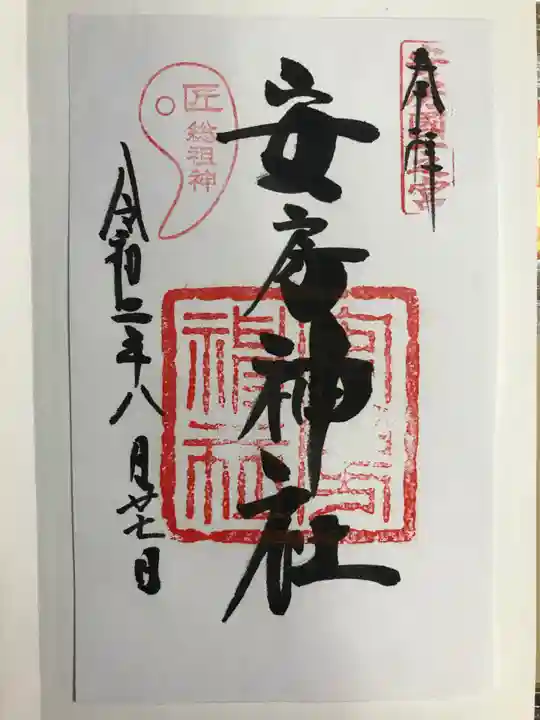 奉拝
安房國一之宮
安房神社
安房神社
匠
総祖神
令和二年八月廿七日